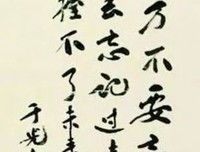 万不要
去忘记过去
握不了未来
于光